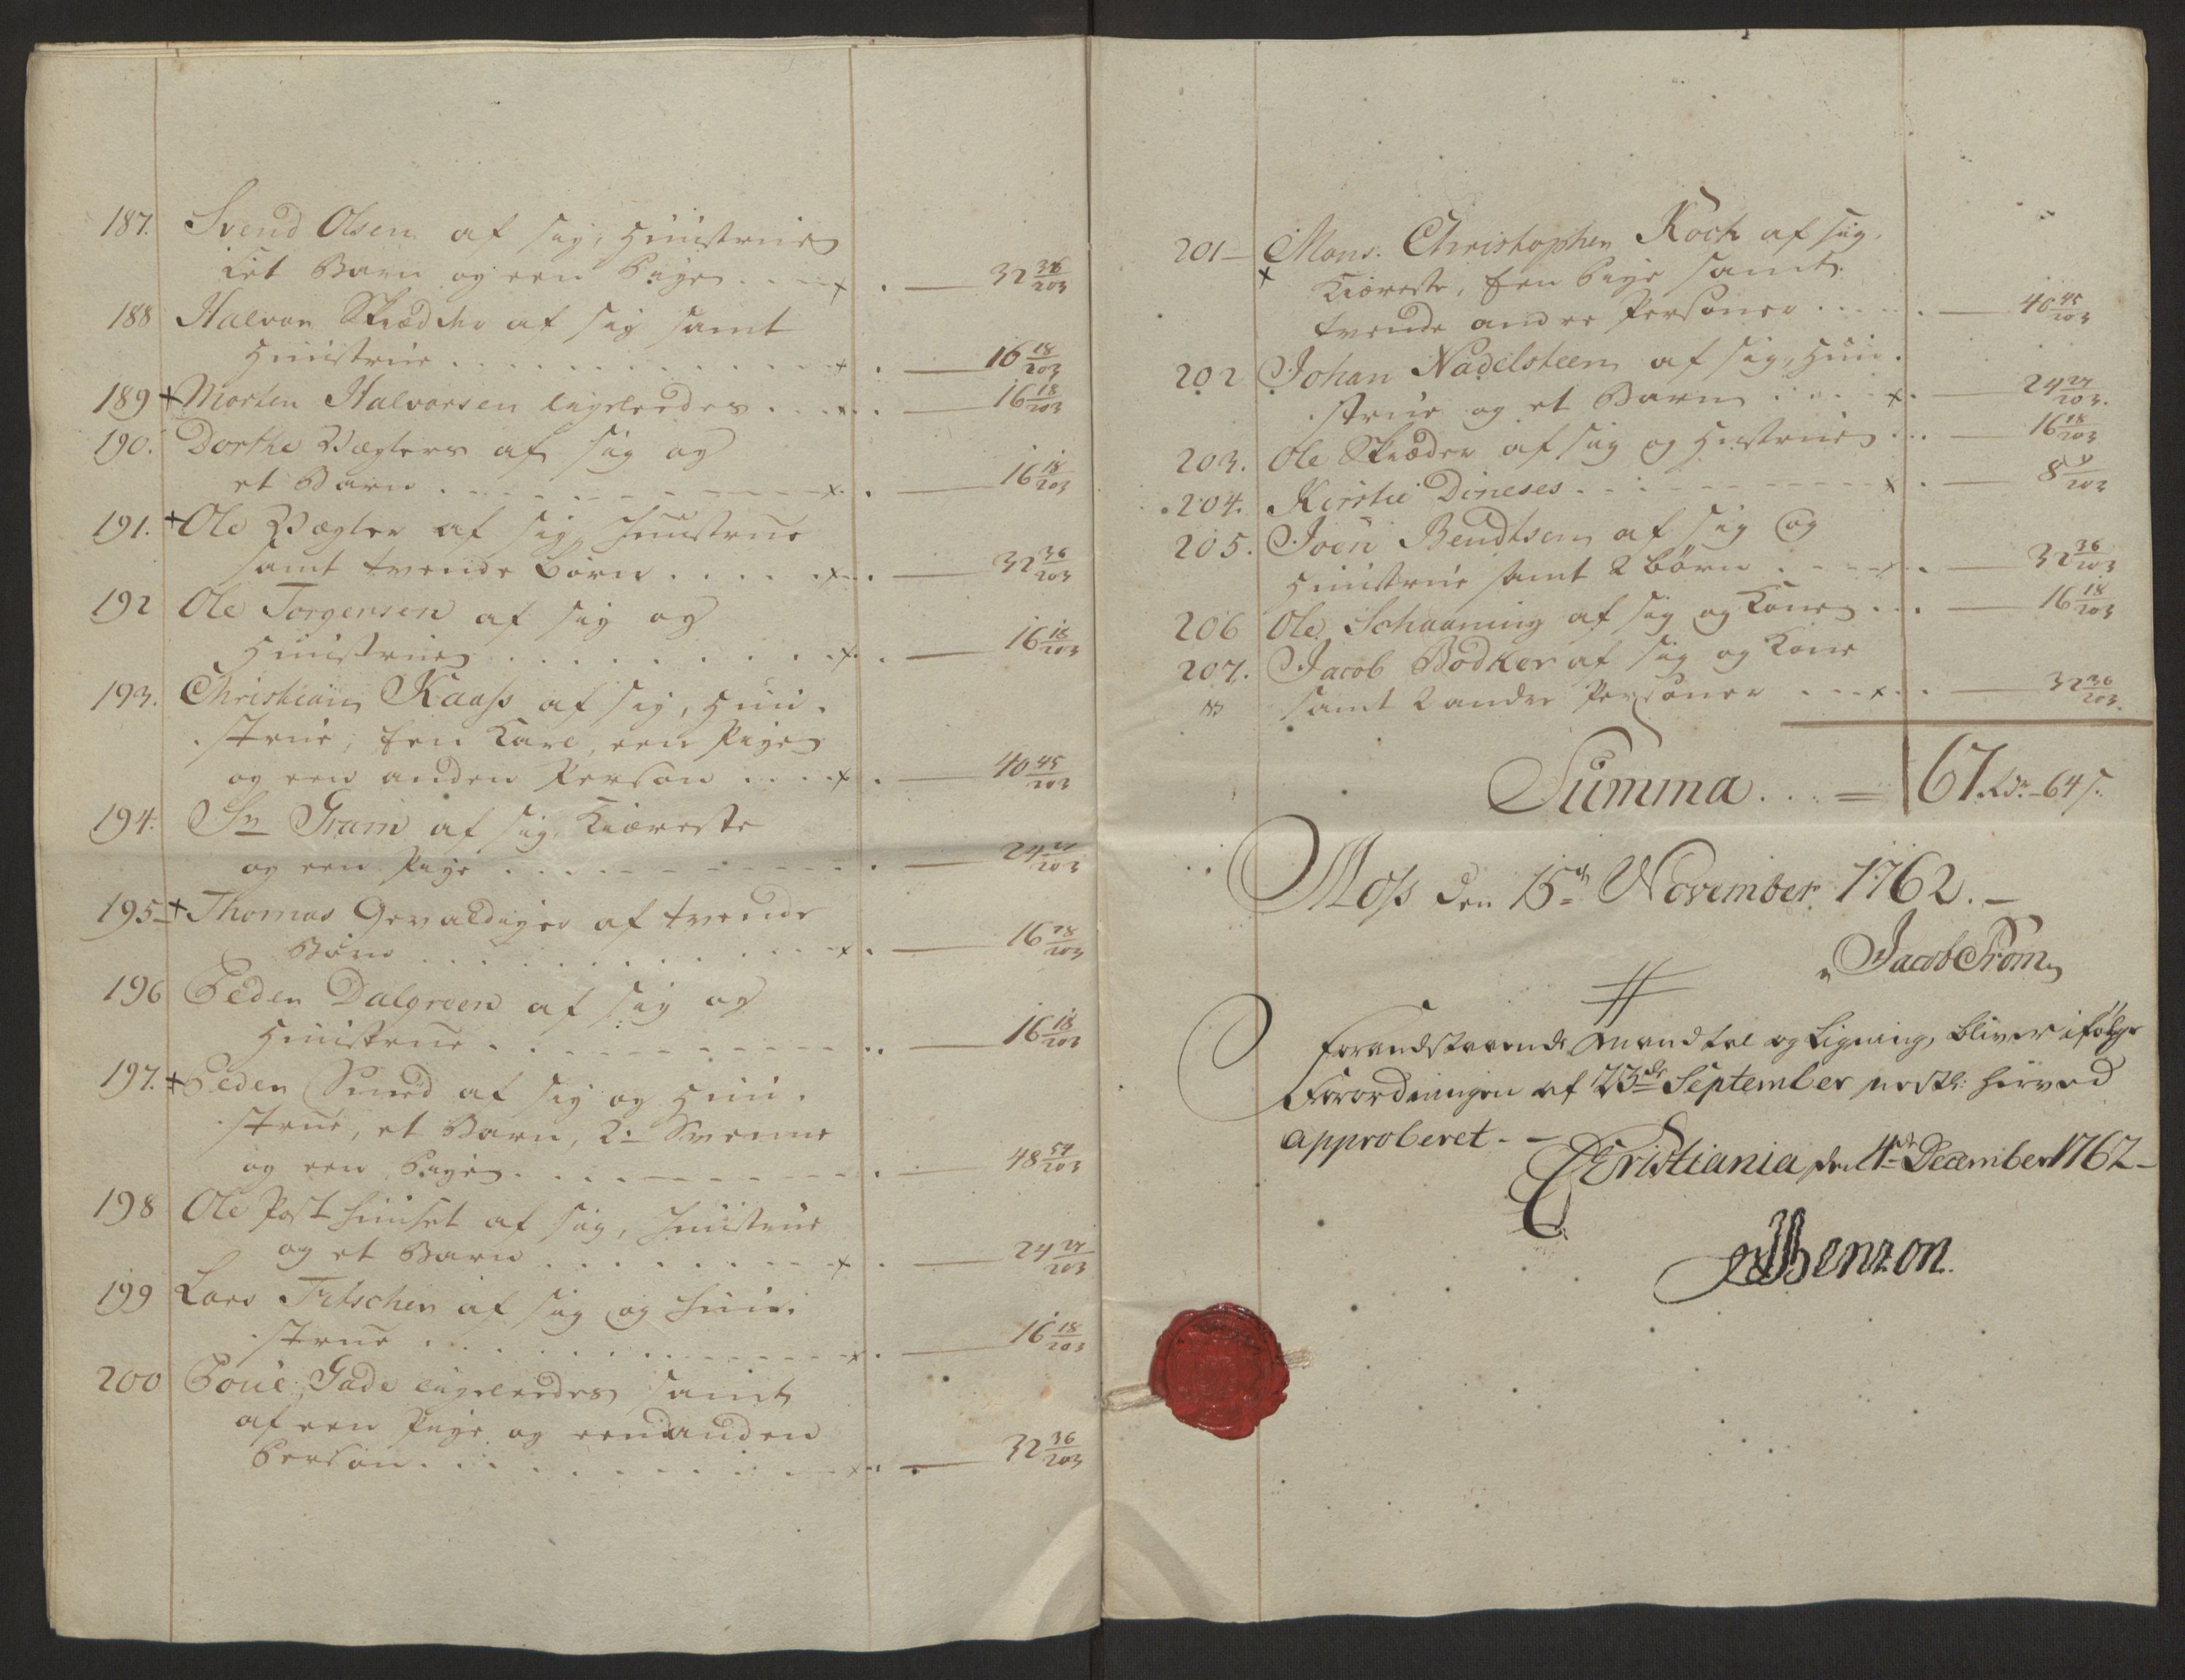 187. Svend Olsen af sig, Huustrue
Eet Barn og een Pige . . . x . — 32 36/203
188 Halvor Skræder af sig samt
Huustrue . . . . . . . . . . . x . — 16 18/203
189 + Morten Halvorsen ligeleedes . . . x . . — 16 18/203
190. Dorthe Wægters af sig og
et Barn . . . . . . . . . . x . . — 16 18/203
191. + Ole Wægter af sig, Huustrue
samt tvende Børn . . . . . x . . — 32 36/203
192 Ole Torgersen af sig og
Huustrue . . . . . . . . . . x . . — 16 18/203
193. Christian Kaass af sig, Huu-
strue, een Karl, een Pige
og een anden Person . . . . x . — 40 45/203
194. Sr. Gram af sig Kiæreste
og een Pige . . . . . . . . . . — 24 27/203
195 – + Thomas Gevaldiger af tvende
Børn . . . . . . . . . . . x . — 16 18/203
196 Peder Dalgreen af sig og
Huustrue . . . . . . . . . . . . — 16 18/203
197. + Peder Smed af sig og Huu-
strue, et Barn, 2: Svenne
og een Pige . . . . . . . . . . — 48 54/203
198 Ole Posthuuset af sig, Huustrue
og et Barn . . . . . . . . . x . — 24 27/203
199 Lars Fitscher af sig og Huu-
strue . . . . . . . . . . . . x . — 16 18/203
200 Poul Gade ligeleedes samt
af een Pige og een anden
Person . . . . . . . . . . x . . — 32 36/203
201 – Mons. Christopher Koch af sig
x Kiæreste, Een Pige samt
tvende andre Personer . . . . . . — 40 45/203
202 Johan Nadelsteen af sig, Huu-
strue og et Barn . . . . x . — 24 27/203.
203. Ole Skræder af sig og Hustrue . . . — 16 18/203
204. Kirstie Dineses . . . . . . . . x . — 8 9/203
205. Joen Bendtsen af sig og
Huustrue samt 2 børn . . . . x . . — 32 36/203
206 Ole Schaaning af sig og Kone . . . — 16 18/203
207. Jacob Bødker af sig og Kone
samt 2 andre Personer . . . x . . — 32 36/203.
Summa . . . = 67 Rdr. – 64 s.
Moss den 15de November 1762. –
Jacob From
Forandstaaende Mandtal og Ligning, bliver ifølge
Forordningen af 23de September nestl: herved
approberet. – –
Christiania den 4de December 1762 –
Benzon.